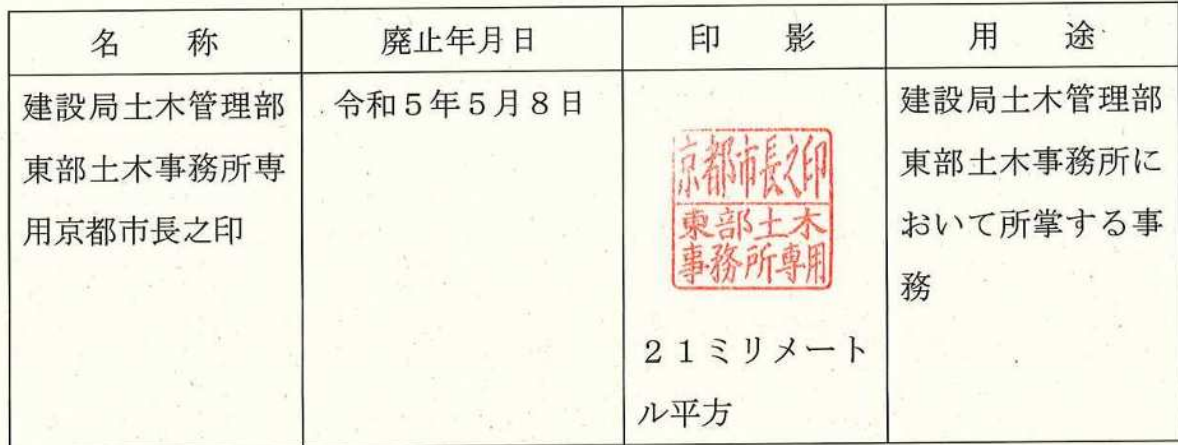 名　称
廃止年月日
印　影
用　途
建設局土木管理部
東部土木事務所専
用京都市長之印
令和５年５月８日
京都市長之印
東部土木
事務所専用
２１ミリメート
ル平方
建設局土木管理部
東部土木事務所に
おいて所掌する事
務